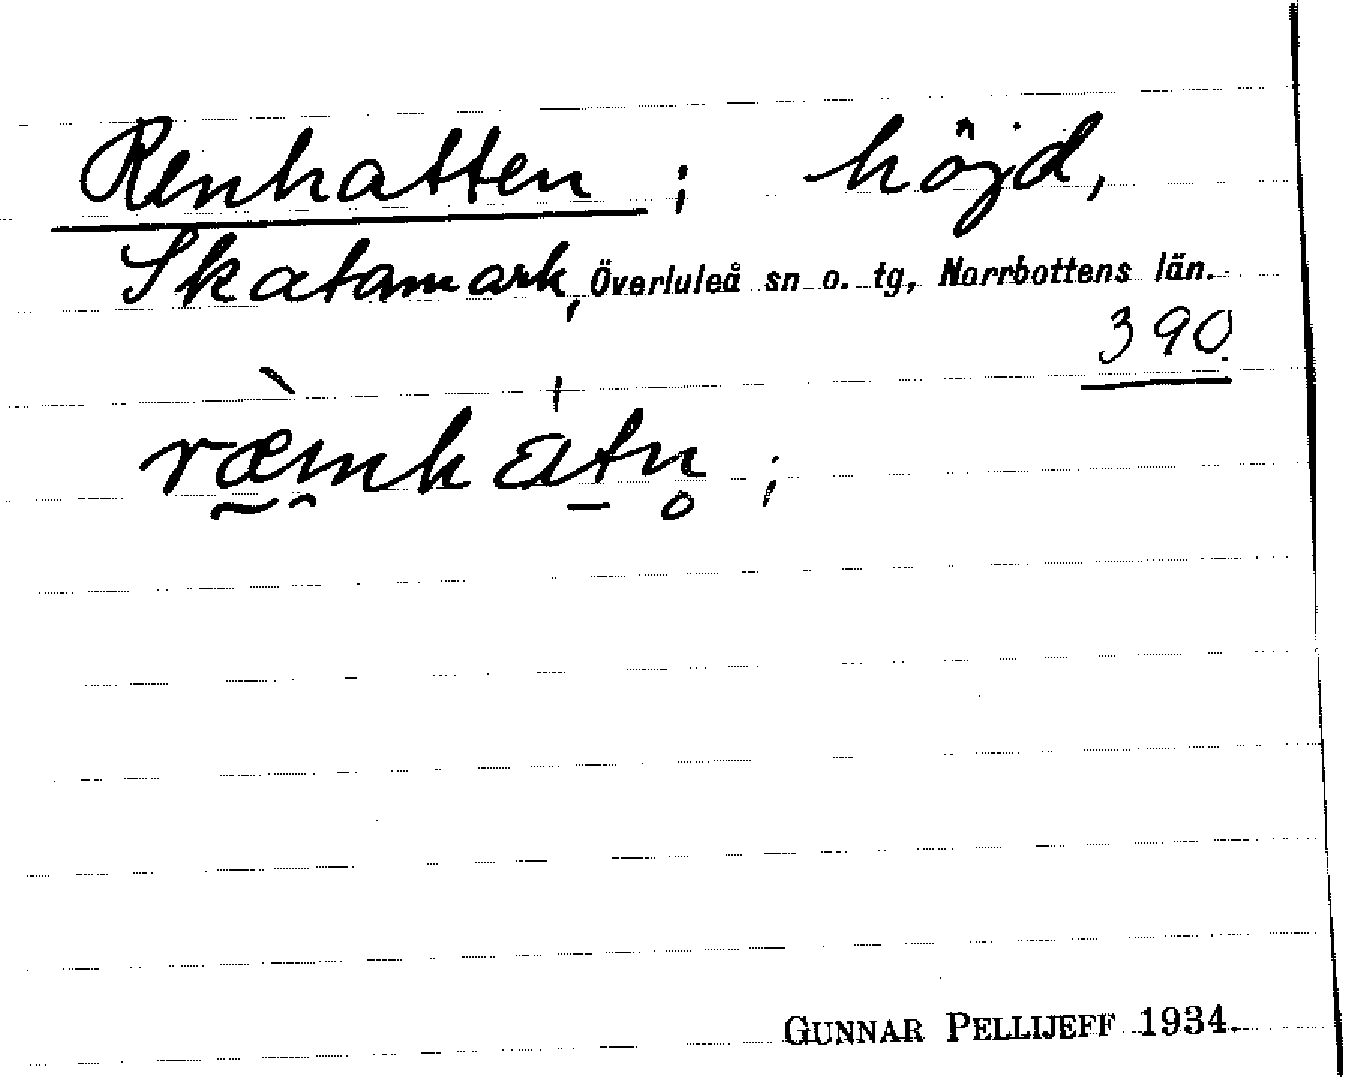 Renhatten; höjd,
Skatamark, Överluleå sn o. tg, Norrbottens län.
390.
GUNNAR PELLIJEFF 1934.